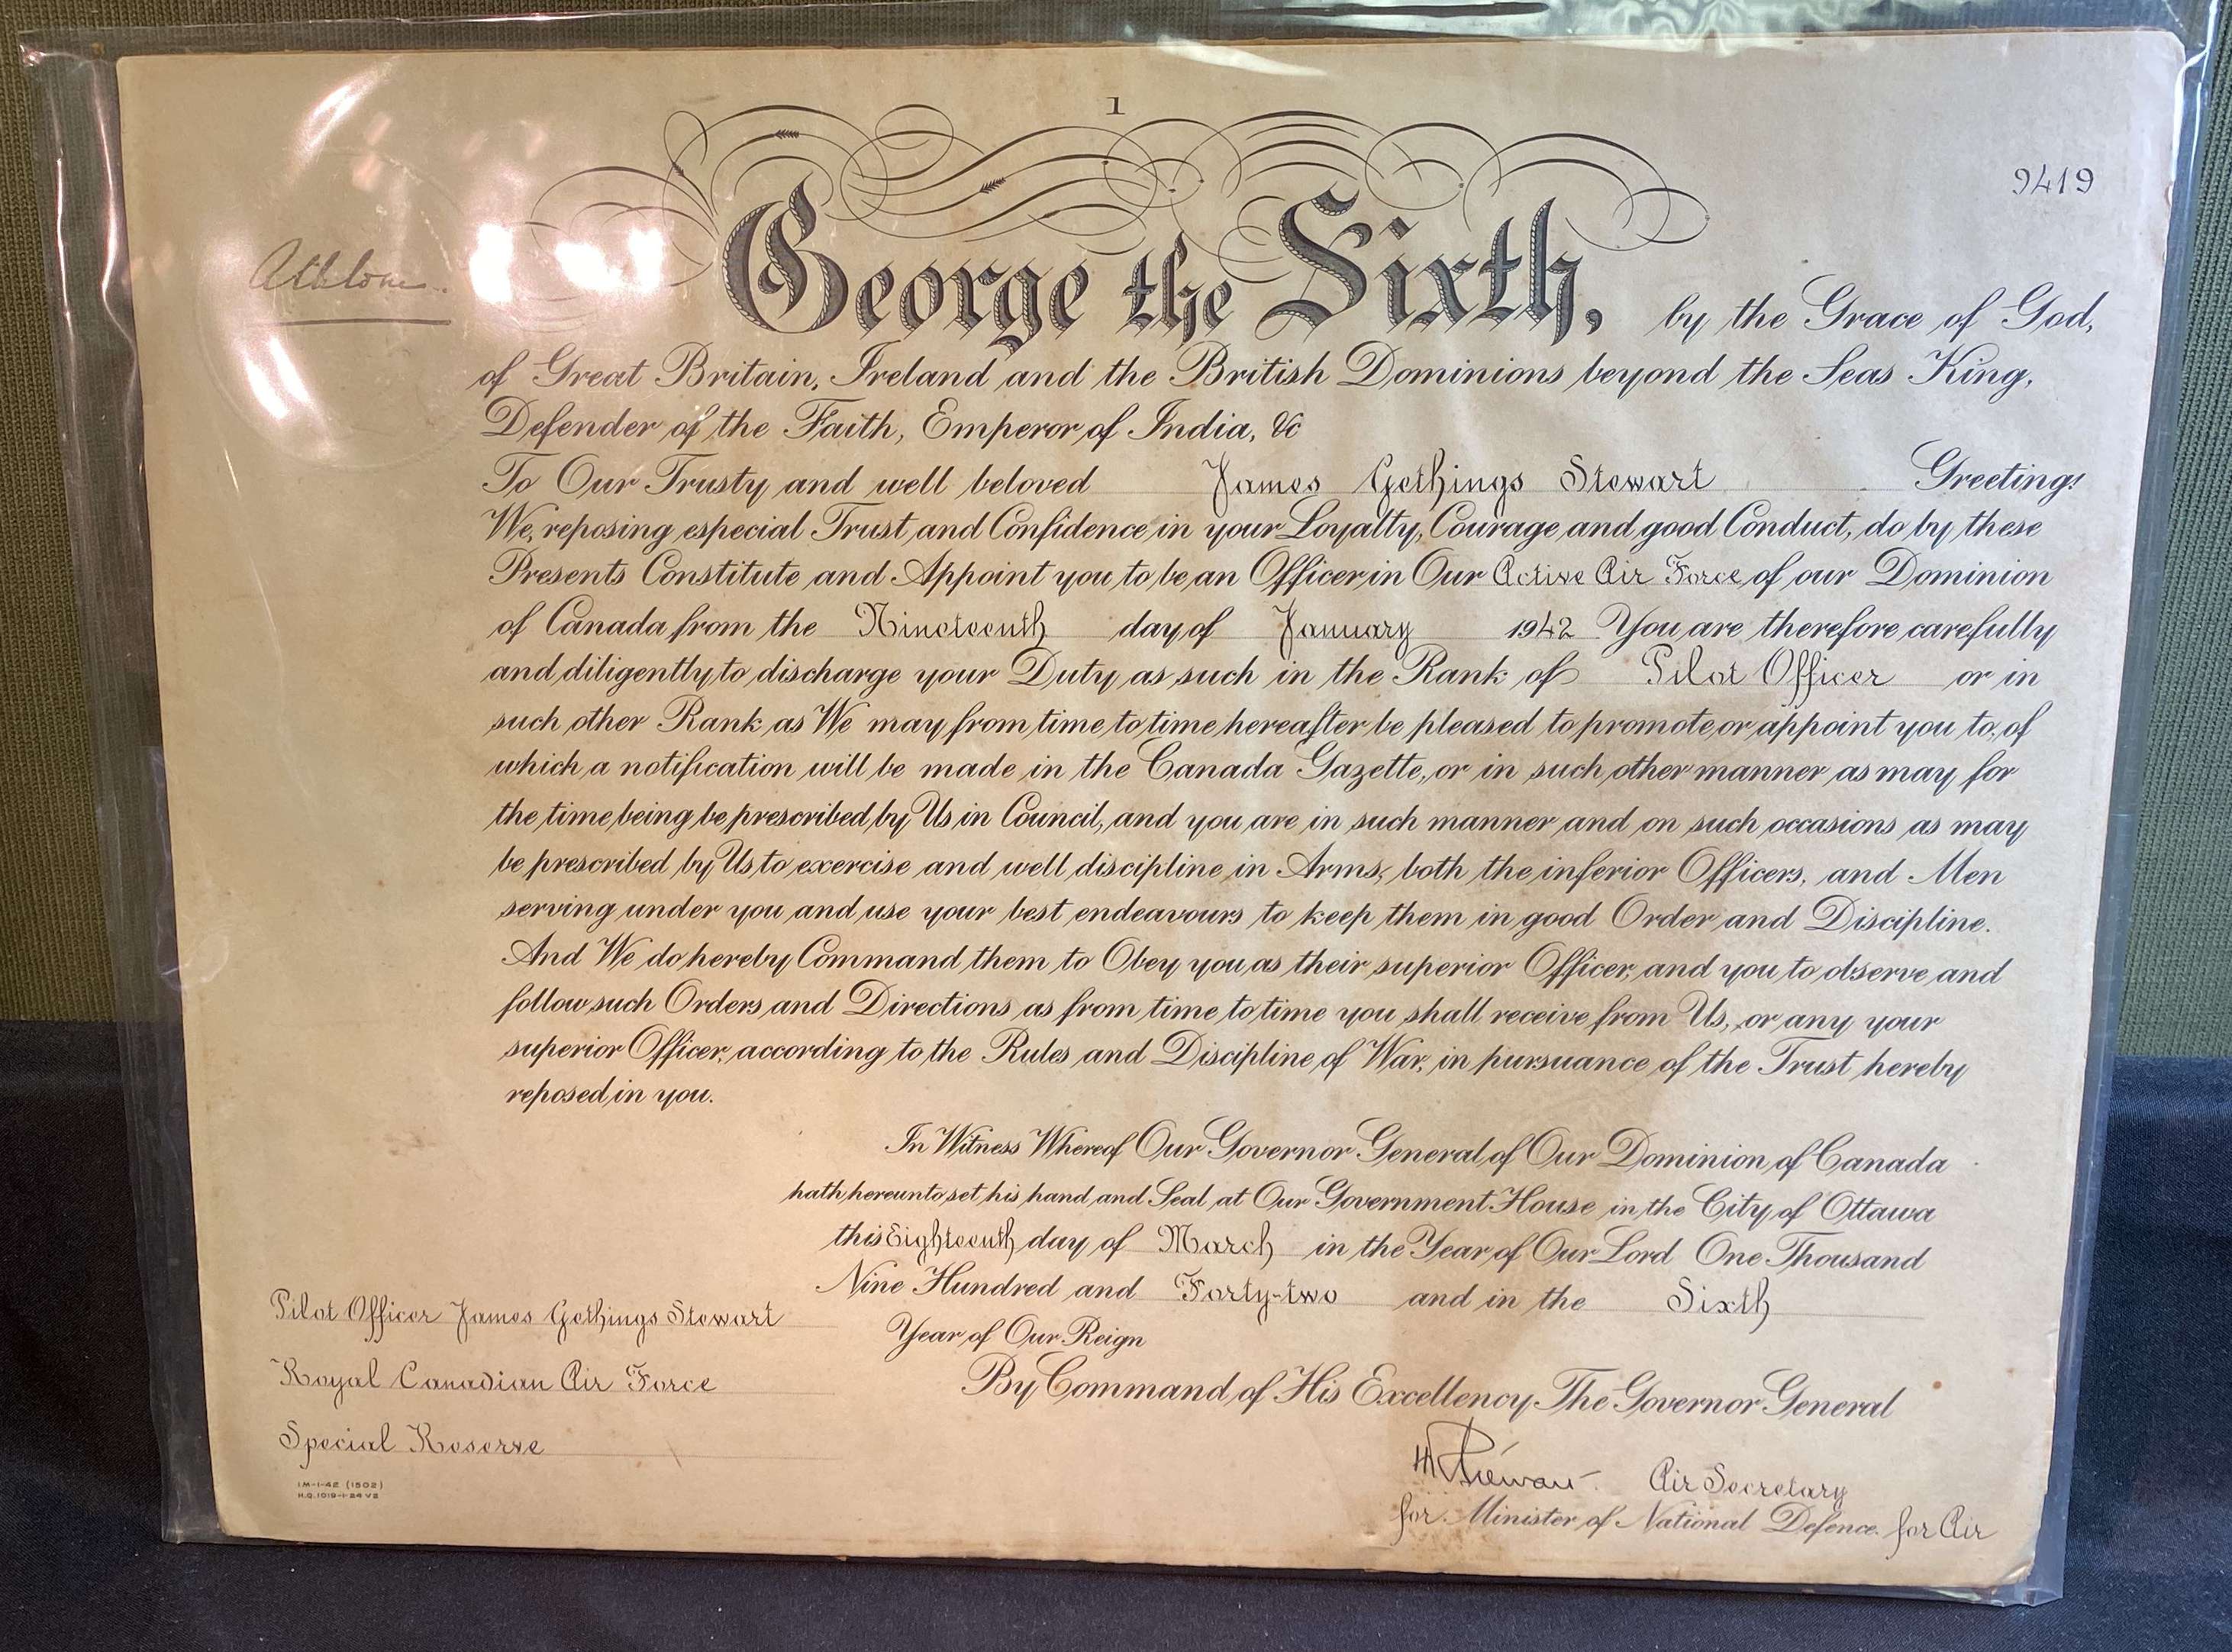 1
9419
Athlone.
George the Sixth, by the Grace of God,
of Great Britain, Ireland and the British Dominions beyond the Seas King,
Defender of the Faith, Emperor of India, &c
To Our Trusty and well beloved James Gethings Stewart Greeting:
We, reposing especial Trust and Confidence in your Loyalty, Courage and good Conduct, do by these
Presents Constitute and Appoint you to be an Officer in Our Active Air Force of our Dominion
of Canada from the Nineteenth day of January 1942 You are therefore carefully
and diligently to discharge your Duty as such in the Rank of Pilot Officer or in
such other Rank as We may from time to time hereafter be pleased to promote or appoint you to, of
which a notification will be made in the Canada Gazette, or in such other manner as may for
the time being be prescribed by Us in Council, and you are in such manner and on such occasions as may
be prescribed by Us to exercise and well discipline in Arms, both the inferior Officers, and Men
serving under you and use your best endeavours to keep them in good Order and Discipline.
And We do hereby Command them to Obey you as their superior Officer, and you to observe and
follow such Orders and Directions as from time to time you shall receive from Us, or any your
superior Officer, according to the Rules and Discipline of War, in pursuance of the Trust hereby
reposed in you.
In Witness Whereof Our Governor General of Our Dominion of Canada
hath hereunto set his hand and Seal at Our Government House in the City of Ottawa
this Eighteenth day of March in the Year of Our Lord One Thousand
Nine Hundred and Forty-two and in the Sixth
Year of Our Reign
By Command of His Excellency The Governor General
Air Secretary
for Minister of National Defence for Air
Pilot Officer James Gethings Stewart
Royal Canadian Air Force
Special Reserve
1M-1-42 (1502)
H.Q. 1019-1-24 V2